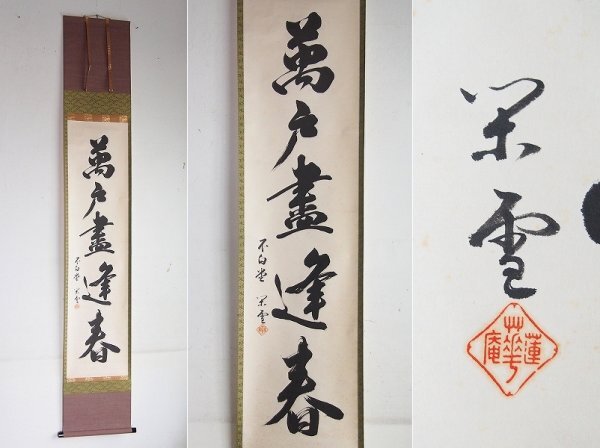 萬戸盡逢春
不白堂 閑雪
萬戸盡逢春
不白堂 閑雪
閑雪
蓮華庵